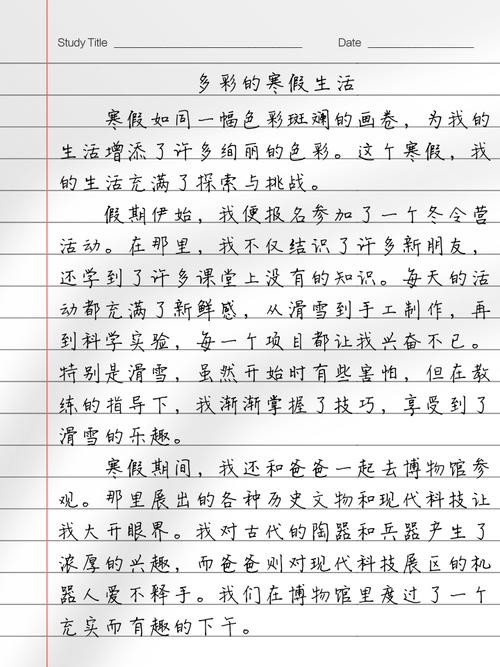 Study Title
Date
多彩的寒假生活
寒假如同一幅色彩斑斓的画卷，为我的
生活增添了许多绚丽的色彩。这个寒假，我
的生活充满了探索与挑战。
假期伊始，我便报名参加了一个冬令营
活动。在那里，我不仅结识了许多新朋友，
还学到了许多课堂上没有的知识。每天的活
动都充满了新鲜感，从滑雪到手工制作，再
到科学实验，每一个项目都让我兴奋不已。
特别是滑雪，虽然开始时有些害怕，但在教
练的指导下，我渐渐掌握了技巧，享受到了
滑雪的乐趣。
寒假期间，我还和爸爸一起去博物馆参
观。那里展出的各种历史文物和现代科技让
我大开眼界。我对古代的陶器和兵器产生了
浓厚的兴趣，而爸爸则对现代科技展区的机
器人爱不释手。我们在博物馆里度过了一个
充实而有趣的下午。